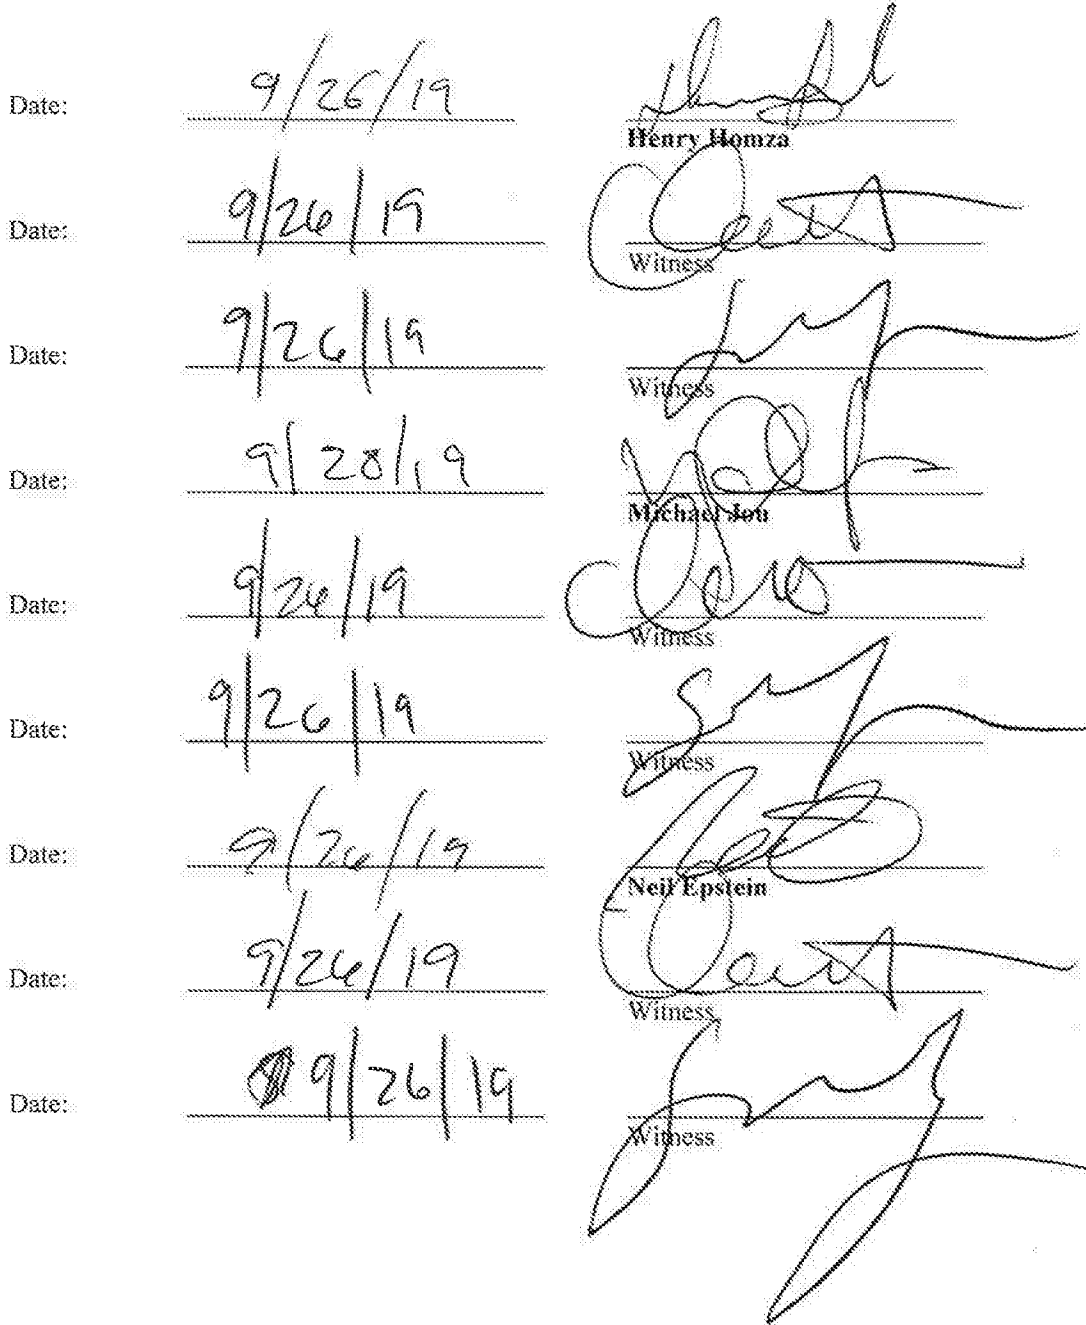 Date: 9/26/19
Henry Homza
Date: 9/26/19
Witness
Date: 9/26/19
Witness
Date: 9/20/19
Michael Jou
Date: 9/26/19
Witness
Date: 9/26/19
Witness
Date: 9/26/19
Neil Epstein
Date: 9/26/19
Witness
Date: 9/26/19
Witness